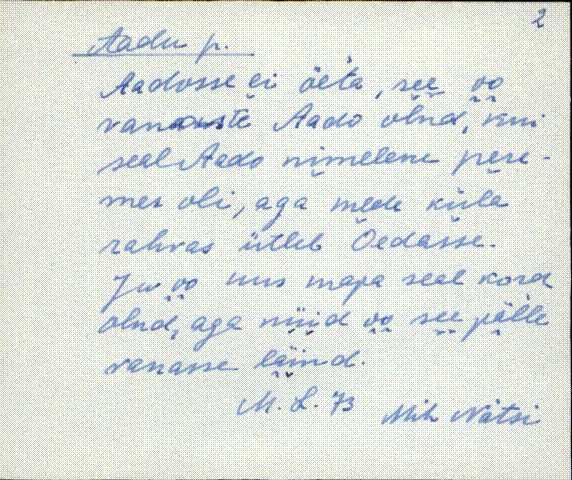 2
Aadu p.
Aadosse ei öeta, see oo
vanaste Aado olnd, kui
seal Aado nimelene pere-
mes oli, aga mede küla
rahvas ütleb Oedasse.
Ju oo uus maja seal kord
olnd, aga nüid oo see pälle
vanasse läind.
M. L. 73 Mih Nätsi